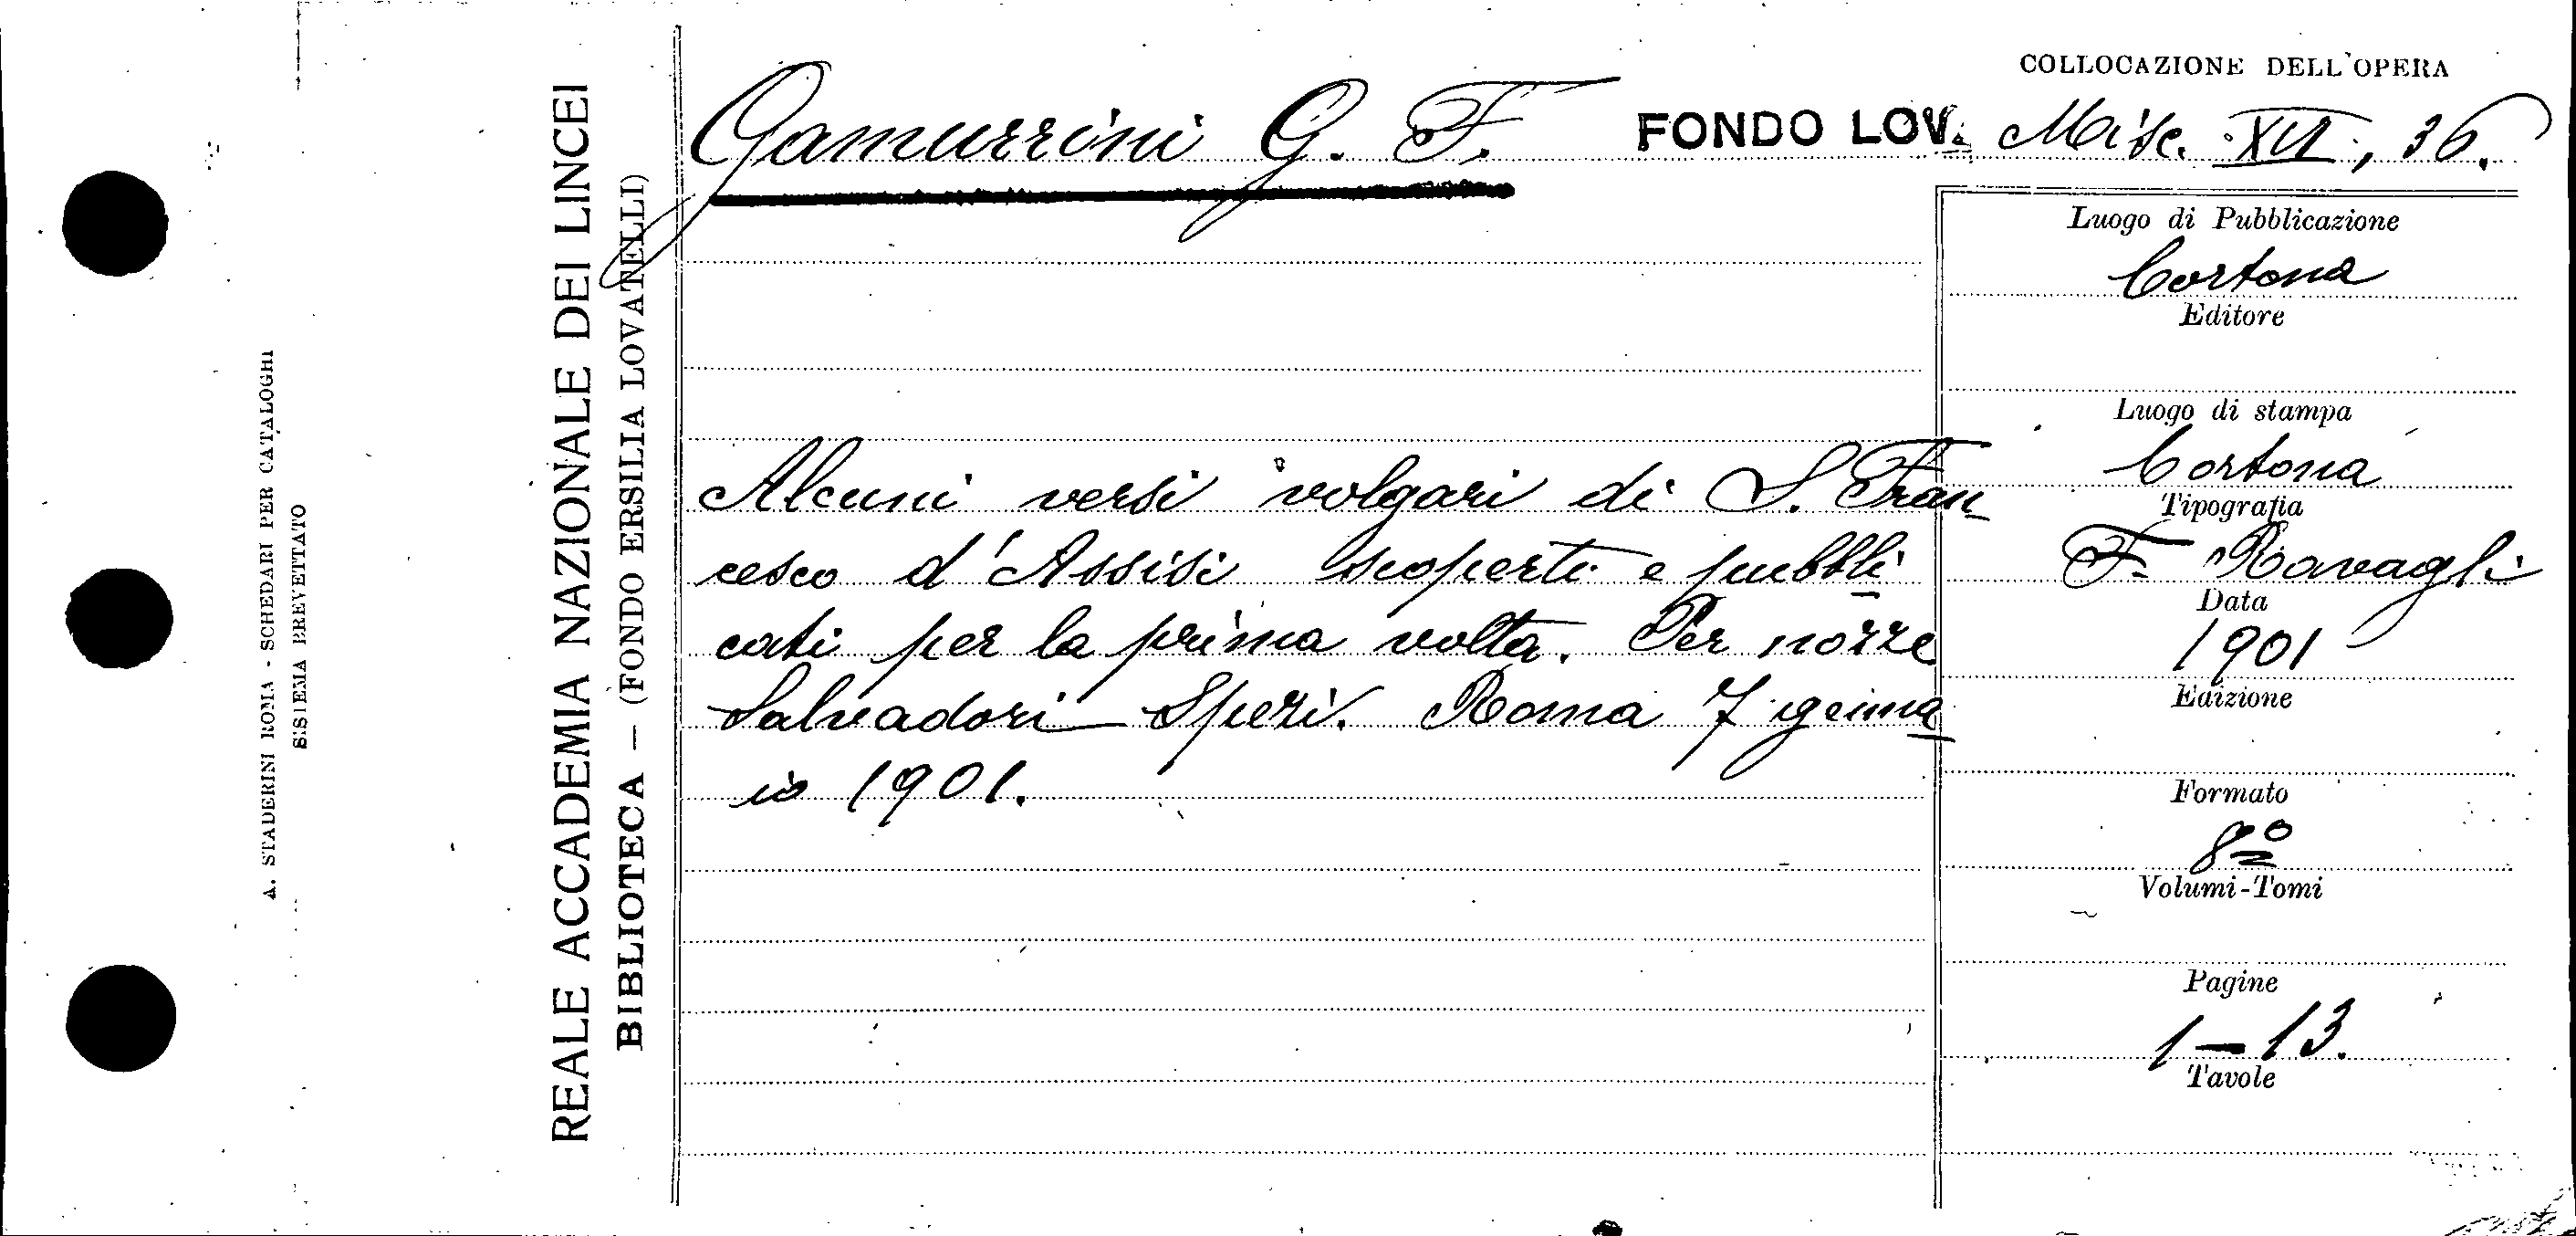 A. STADERINI ROMA - SCHEDARI PER CATALOGHI
SISTEMA BREVETTATO
REALE ACCADEMIA NAZIONALE DEI LINCEI
BIBLIOTECA — (FONDO ERSILIA LOVATELLI)
COLLOCAZIONE DELL'OPERA
Gamurrini G. F. FONDO LOV. Misc. XVI, 36.
Alcuni versi volgari di S. Fran
cesco d'Assisi scoperti e pubbli
cati per la prima volta. Per nozze
Salvadori - Speri. Roma 7 genna
io 1901.
Luogo di Pubblicazione
Cortona
Editore
Luogo di stampa
Cortona
Tipografia
F. Ravagli
Data
1901
Edizione
Formato
8º
Volumi-Tomi
Pagine
1-13.
Tavole